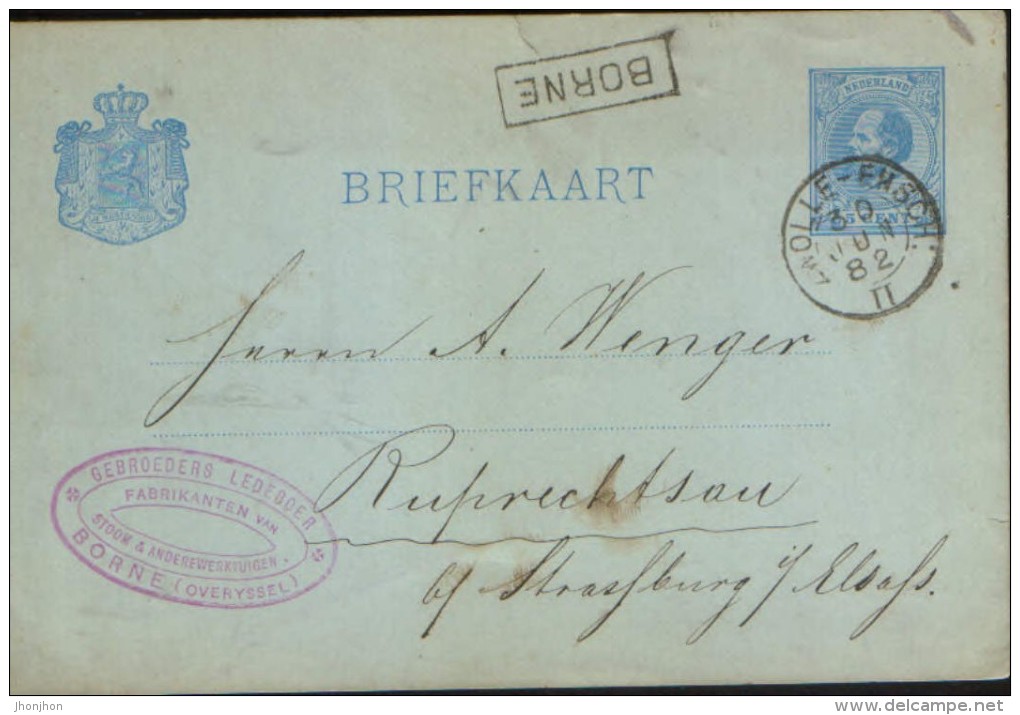 BORNE
NEDERLAND
BRIEFKAART
5 CENT
ZWOLLE-ENSCH.
30
JUN
82
II
Herrn A. Wenger
Ruprechtsau
b/ Strassburg i/ Elsass.
GEBROEDERS LEDEBOER
FABRIKANTEN VAN
STOOM & ANDEREWERKTUIGEN.
BORNE (OVERYSSEL)
jhonjhon
www.delcampe.net